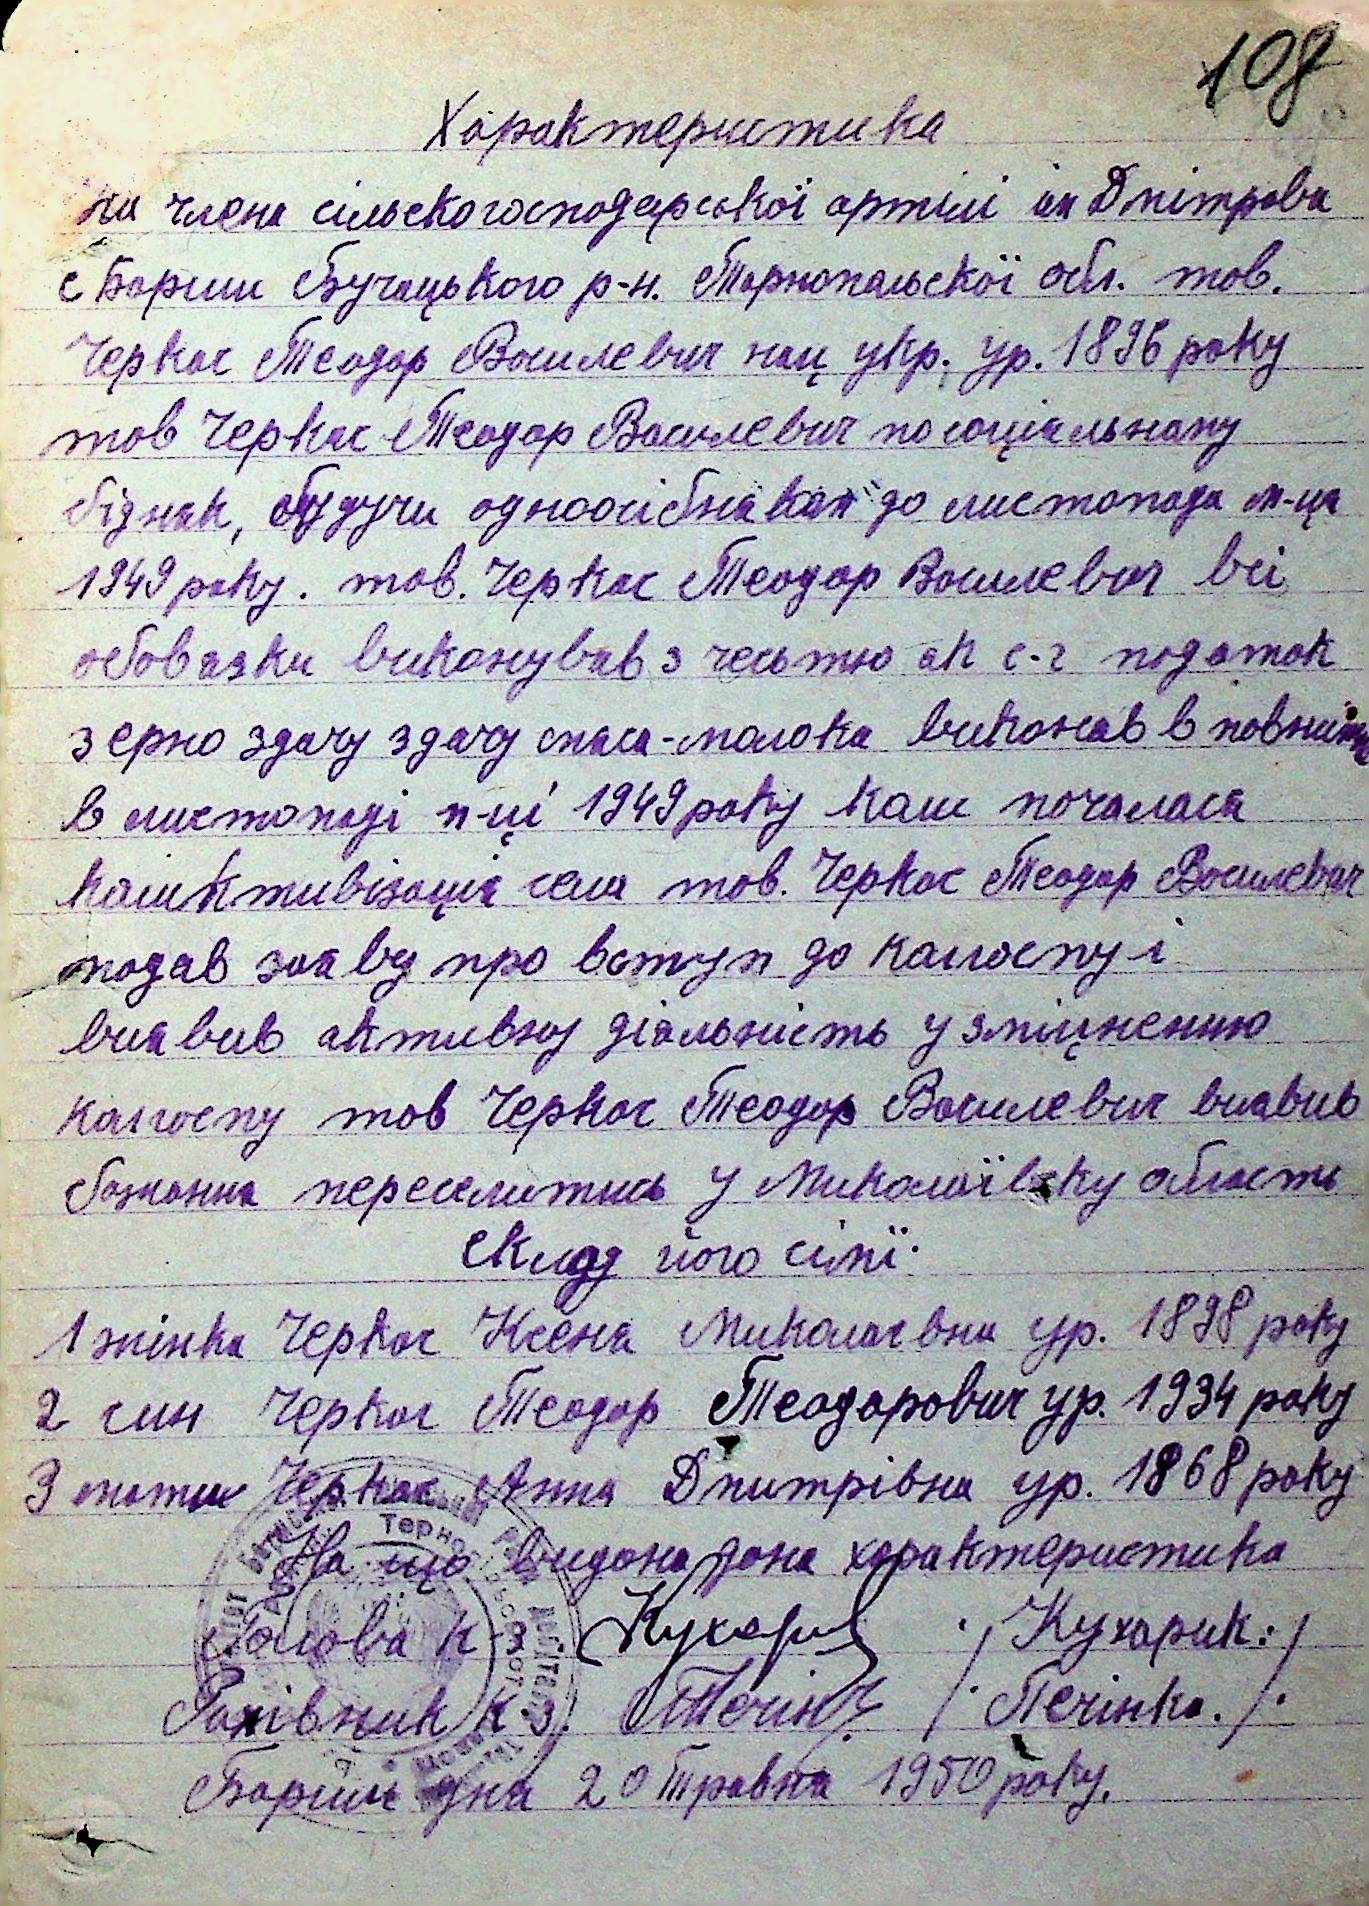 108
Характеристика
На члена сільскогосподарської артілі ім Дмітрова
с Бариш Бучацького р-н. Тернопальскої обл. тов.
Черкас Теодор Василевич нац укр. ур. 1896 року
тов Черкас Теодор Василевич по соціальному
бідняк, будучи одноосібником до листопада м-ця
1949 року. тов. Черкас Теодор Василевич всі
обовязки виконував з честью як с-г податок
зерно здачу здачу мяса-молока виконав в повни
в листопаді м-ці 1949 року коли почалася
коликтивізація села тов. Черкас Теодор Василевич
подав заяву про вступ до колгоспу і
виявив активну діяльність у зміцненню
колгоспу тов Черкас Теодор Василевич виявив
бажання переселитись у Миколаївску область
склад його сімї.
1 жінка Черкас Ксеня Миколаївна ур. 1898 року
2 син Черкас Теодор Теодорович ур. 1934 року
3 мати Черкас Анна Дмитрівна ур. 1868 року
На що видана дана характеристика
Голова к-з Кухарик /Кухарик:/
Рахівник к.з. Печінка /Печінка./
Бариш дня 20 Травня 1950 року.